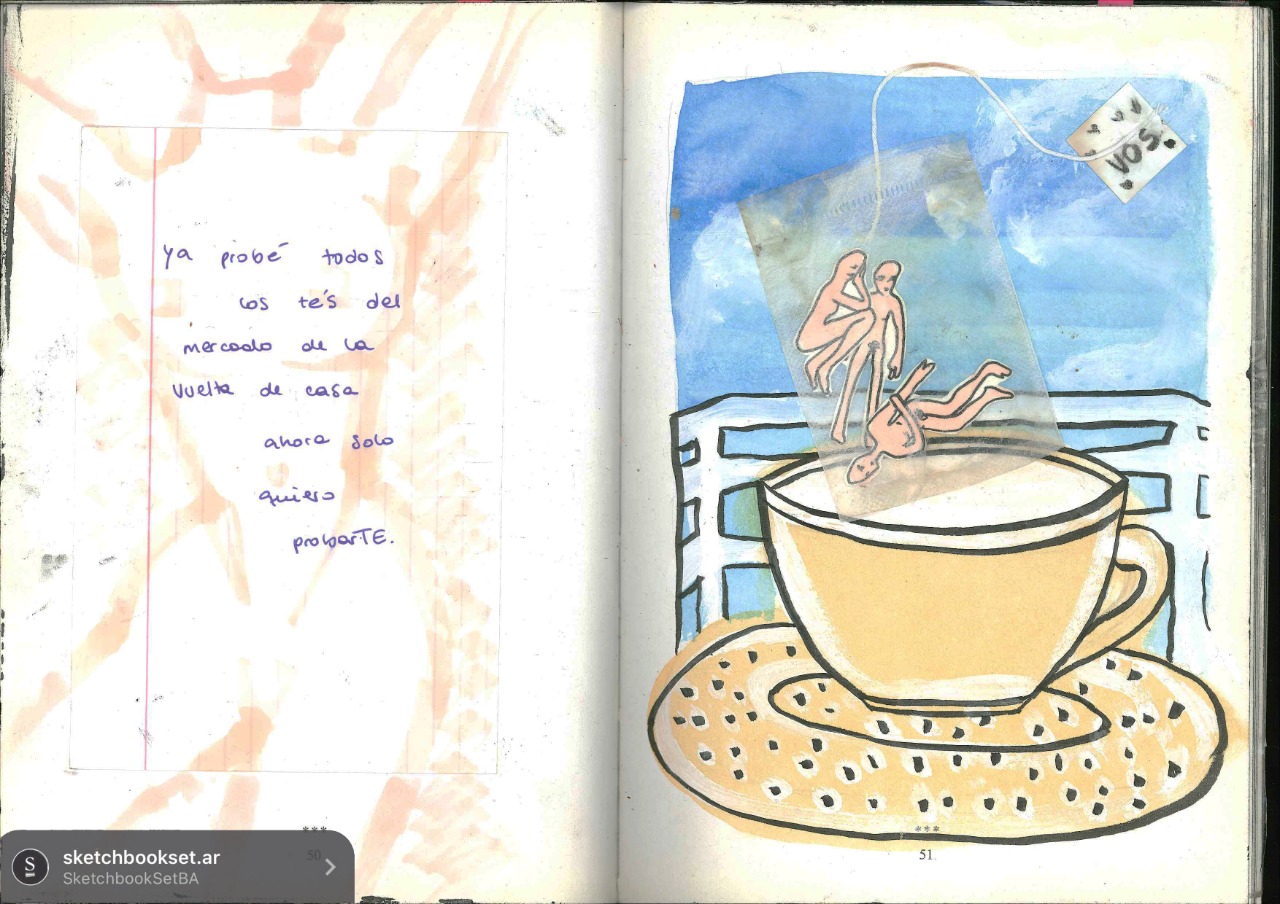 ya probé todos
los te's del
mercado de la
vuelta de casa
ahora solo
quiero
probarTE.
***
50
VOS
***
51
S
sketchbookset.ar
SketchbookSetBA